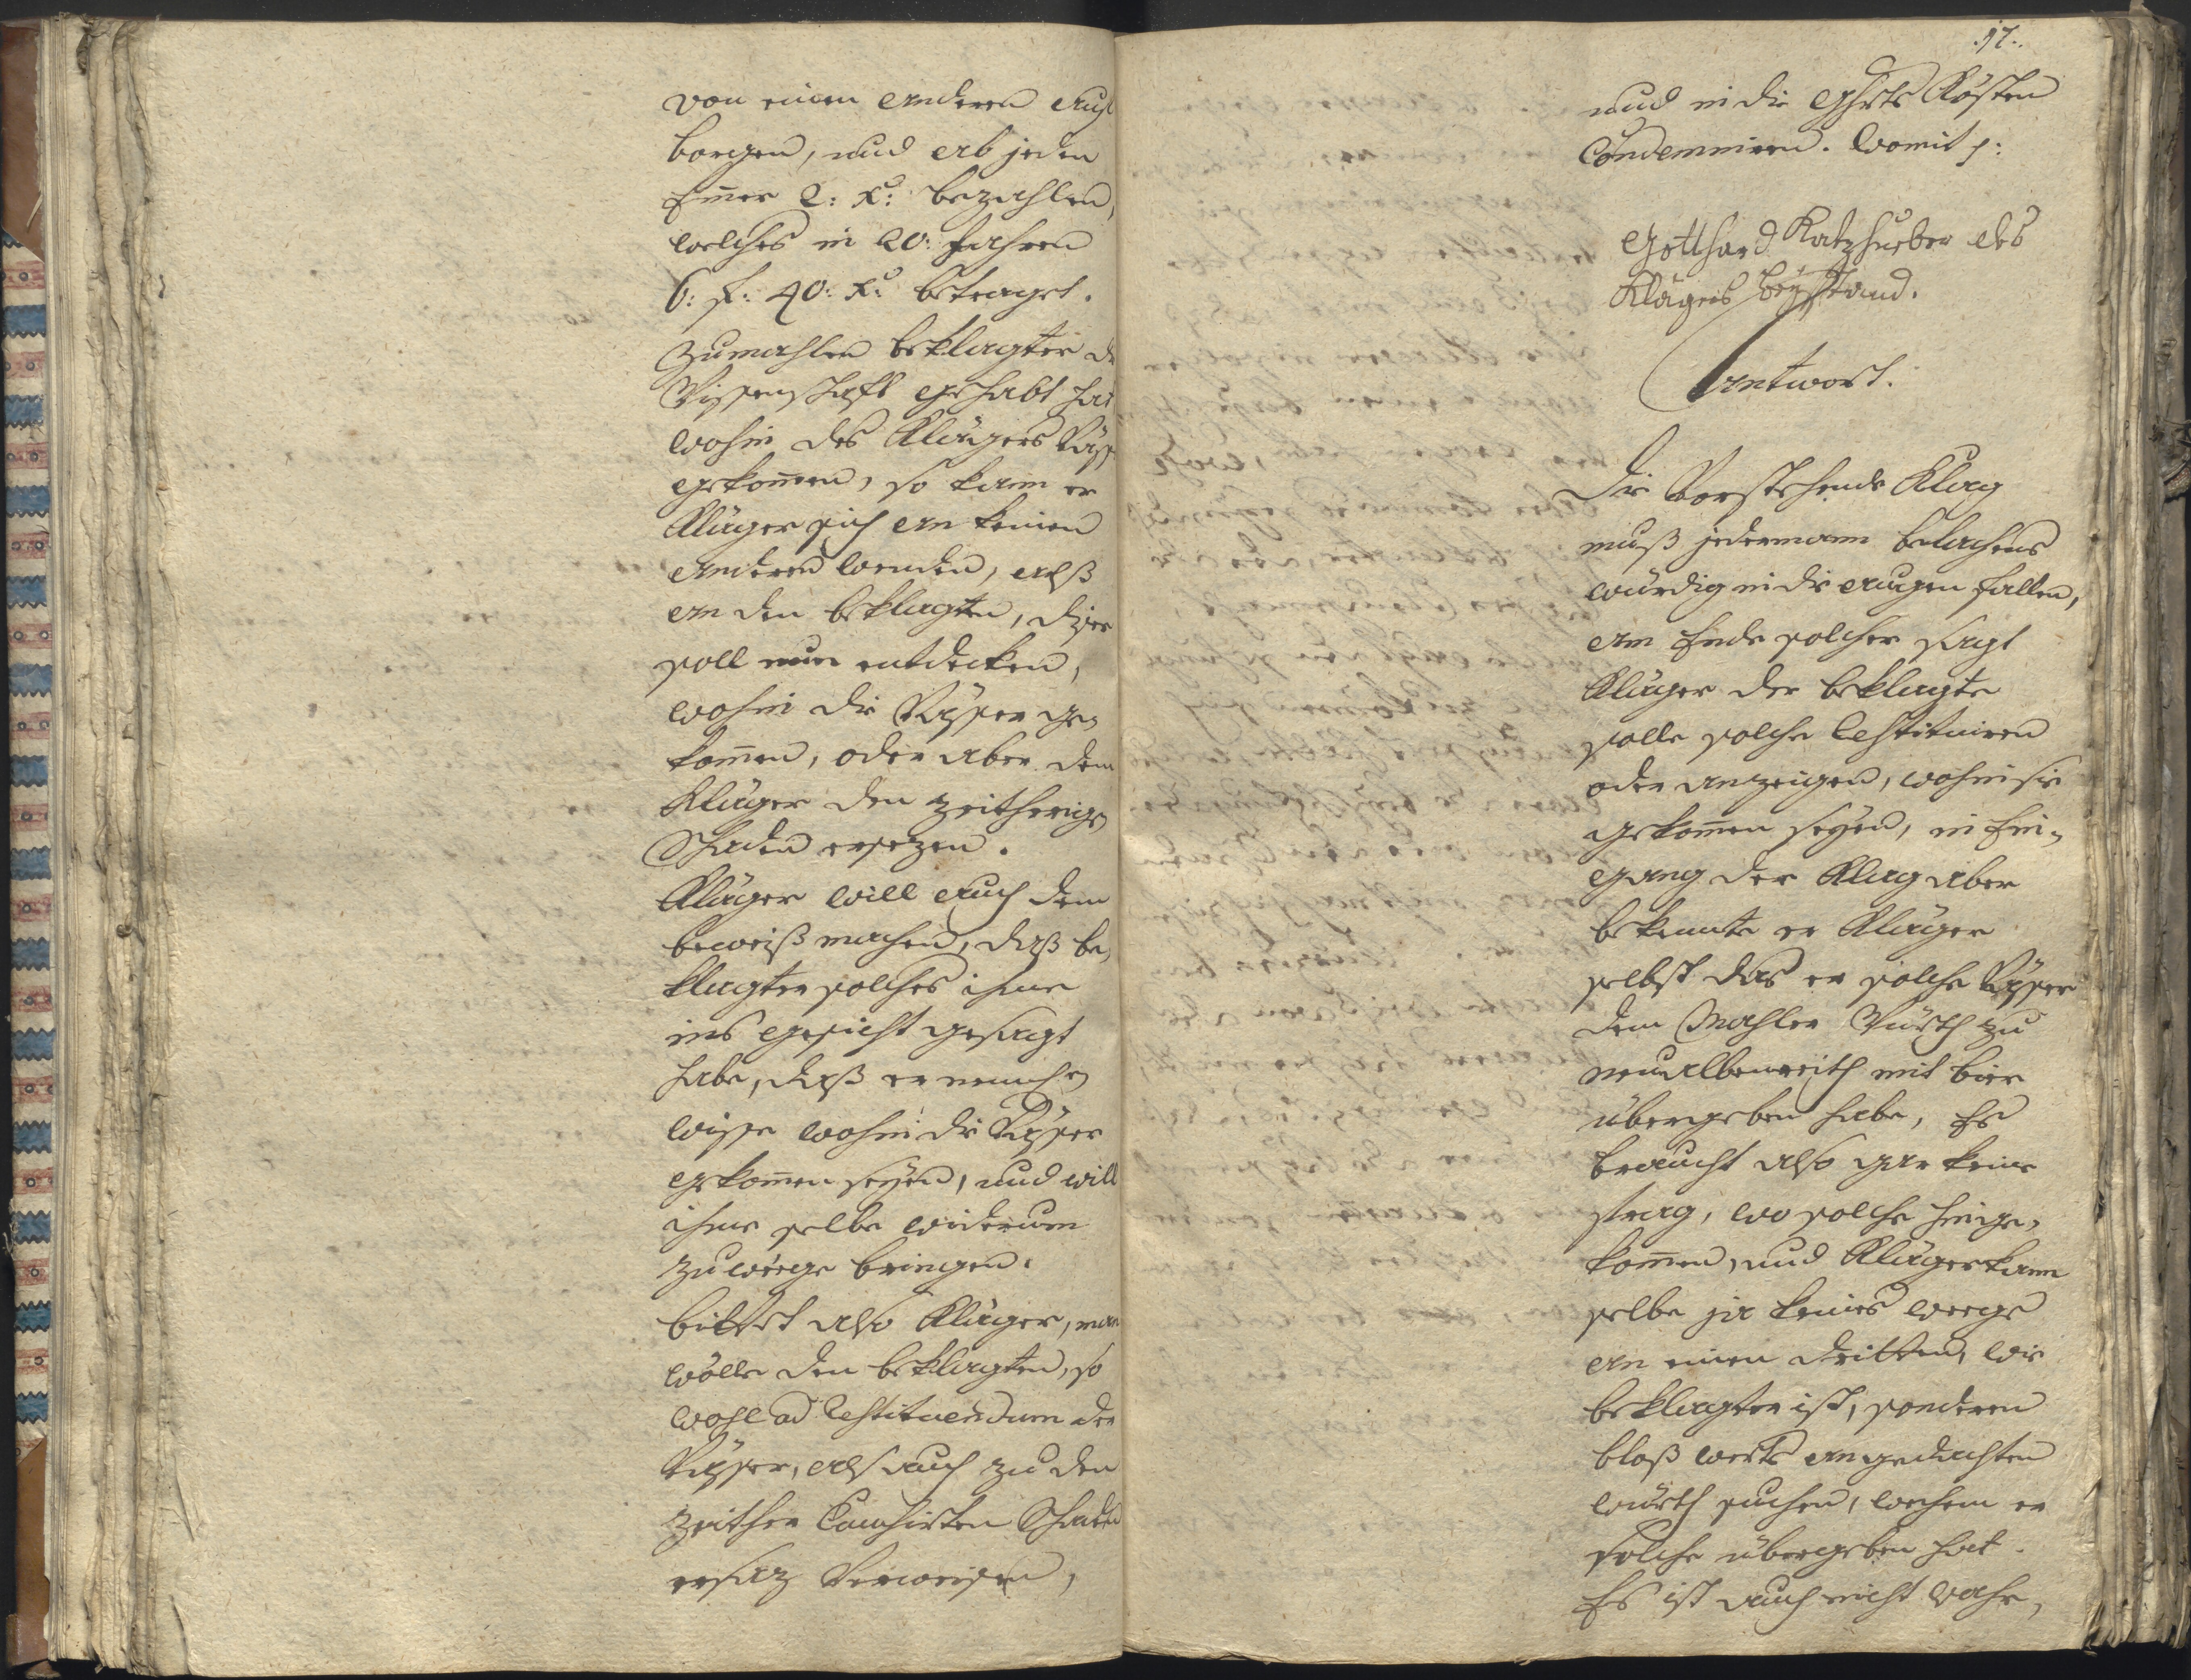 von einen anderen auß
borgen, und ab jeden
Emer 2: xr: bezahlen,
welches in 20: Jahren
6: f: 40: xr: betraget.
Zumahlen beklagter die
Wissenschafft gehabt hat
wohin des Klägers Väss
gekom̄en, so kann er
Kläger sich an keinen
anderen wenden, alß
an den beklagten, dißer
soll nun entdecken,
wohin die Vässer ge-
kom̄en, oder aber dem
Kläger den zeitherigen
Schaden ersezen.
Kläger will auch dem
beweiß machen, daß be-
klagter solches ihme
ins gesicht gesagt
habe, daß er
wisse wohin die Vässer
gekom̄en seyen, und will
ihme selbe widerum
zu weege bringen.
bittet also Kläger, man
wolle den beklagten, so
wohl ad Restituendum der
Vässer, als auch zu den
zeither Causirten Schaden
ersaz Verweisen,
.17.
und in die Ghrts Kösten
Condemniren. Womit p:
Gotthard Katzhueber des
Klägers beystand.
Antwort.
Die Vorstehende Klag
muß jedermann belachens
würdig in die augen fallen,
am Ende solcher sagt
Kläger der beklagte
solle solche Restituiren
oder anzeigen, wohin sie
gekom̄en seyen, in Ein-
gang der Klag aber
bekennte er Kläger
selbst das er solche Vässer
dem Mahler Würth zu
neualbenreith mit bier
übergeben habe, Es
braucht also gar keine
frag, wo solche hinge-
kom̄en, und Kläger kann
selbe ja keines weegs
an einen dritten, wie
beklagter ist, sonderen
bloß an gedachten
würth suchen, wechem er
solche übergeben hat.
Es ist auch nicht wahr,